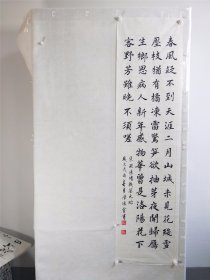 春風疑不到天涯二月山城未見花殘雪
壓枝猶有橘凍雷驚筍欲抽芽夜聞歸雁
生鄉思病入新年感物華曾是洛陽花下
客野芳雖晚不須嗟